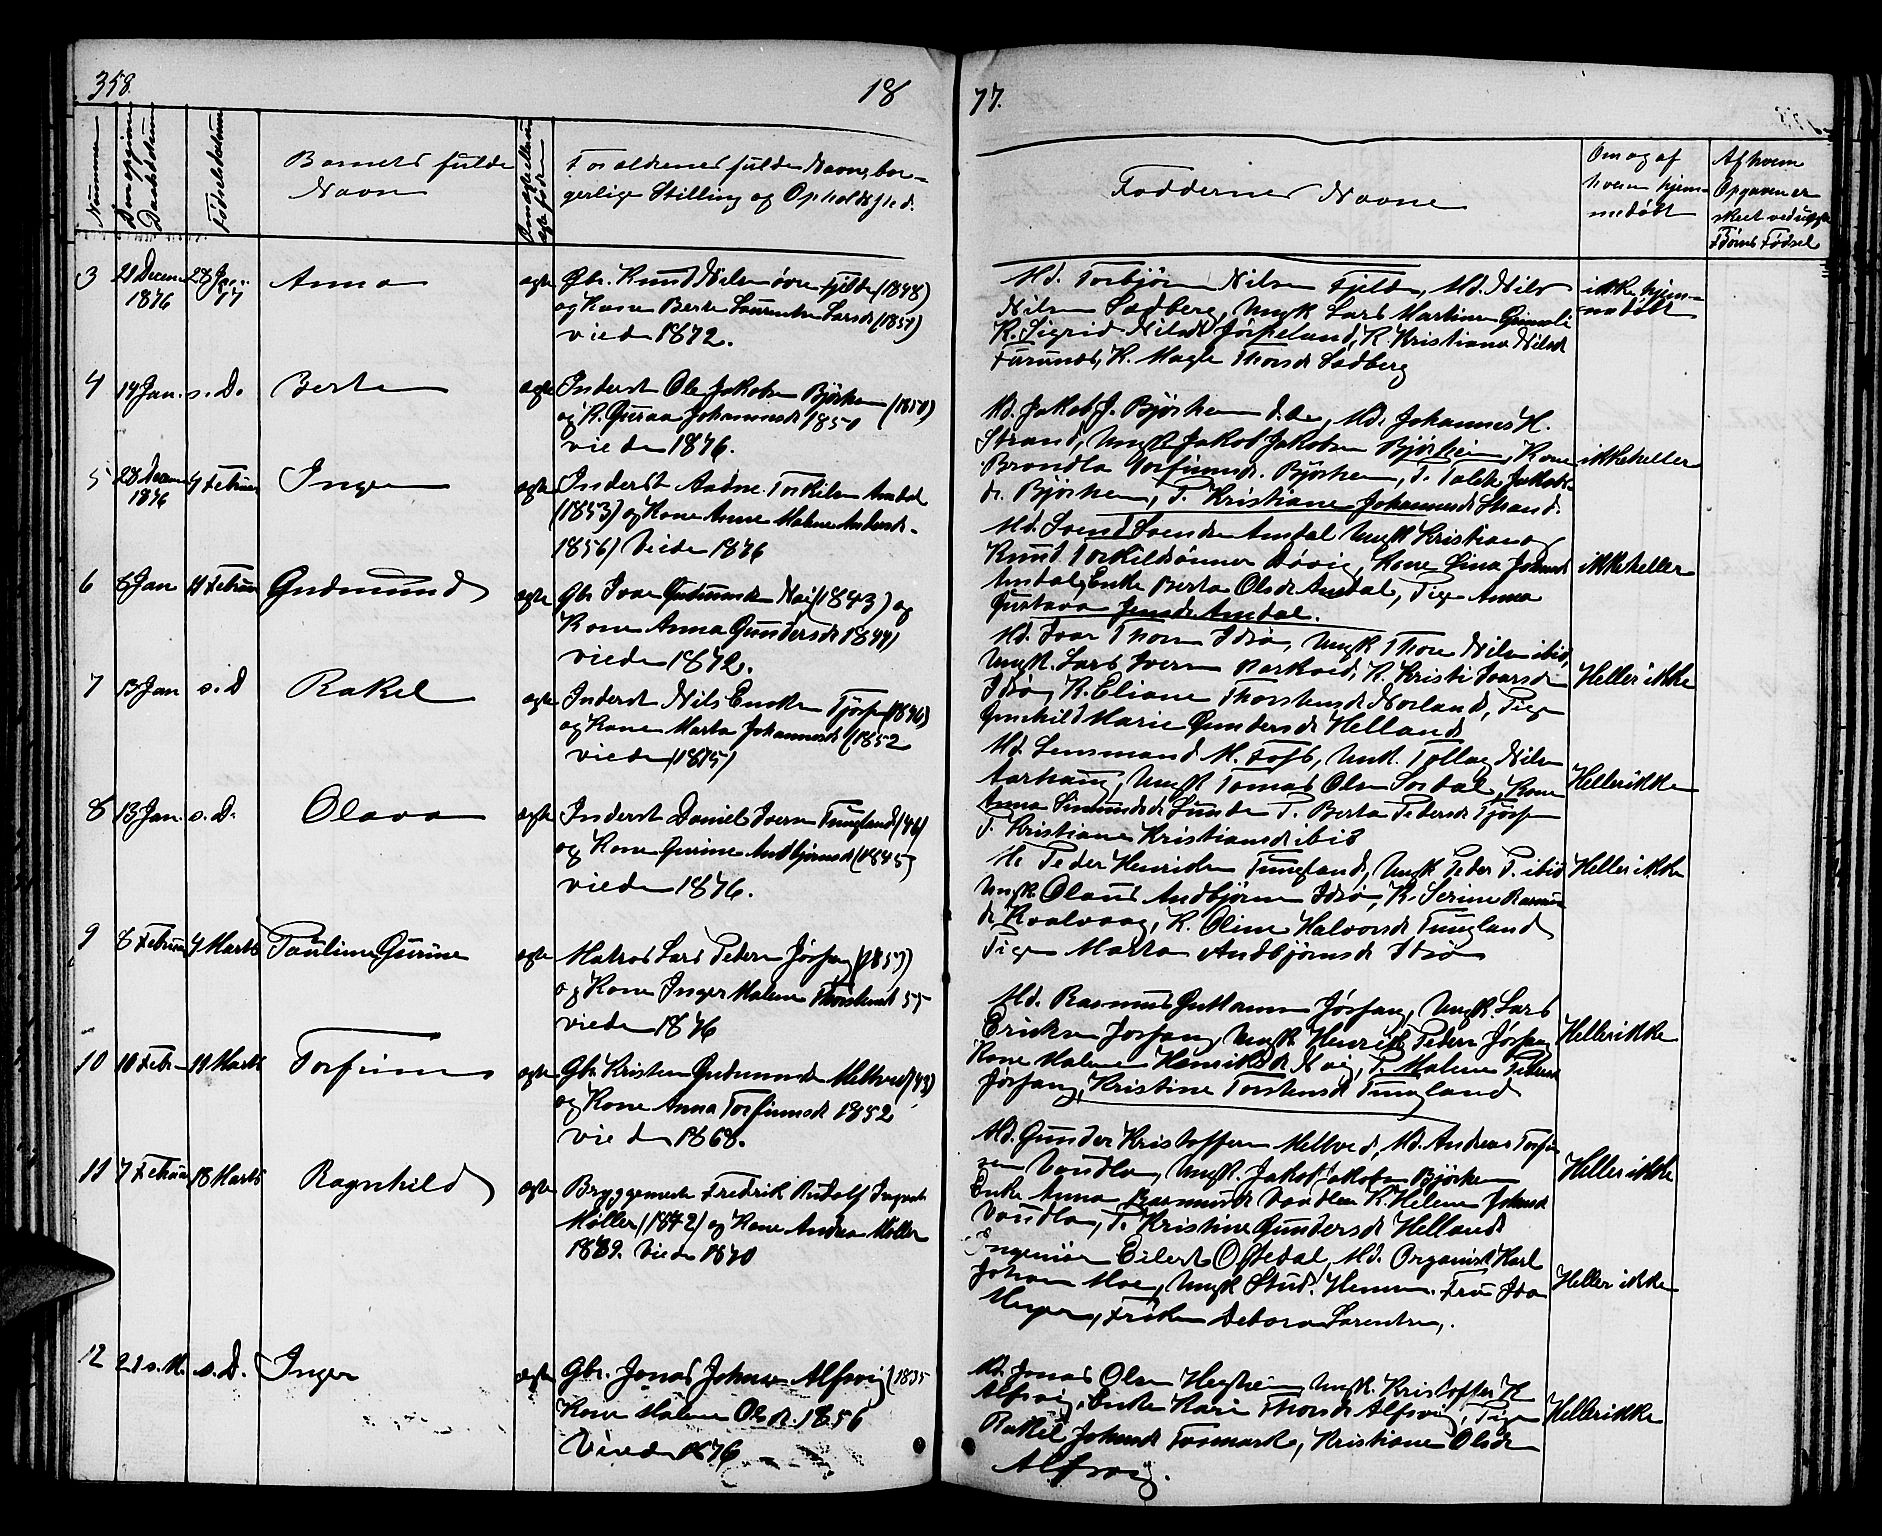 358.
18
77.
Nummer
Fødselsdatum
Barnets fulde
Navn
Forældrenes fulde Navn, bor-
gerlige Stilling og Opholdssted.
Faddernes Navne
Om og af
hvem hjem-
medøbt
Af hvem
Opgaven er
skeet ved uægte
Børns Fødsel
3
21 Decem
1876
28 Jan.
77
Anna
ægte
Gbr. Knud Nilsen øvre Fjelde (1848)
og Kone Berte Laurentse Larsd (1851)
viede 1872.
Md. Torbjørn Nilsen Fjelde, Md. Nils
Nilsen Sædberg, Ungk Lars Martin
K. Sigrid Nilsd Jørpeland, K. Kristiane Nilsd
K. Thorsd Sædberg
ikke hjem-
medøbt
4
14 Jan.
s. D.
Berte
ægte
Inderst Ole Jakobsen Bjørheim (1850)
og K. Guraa Johannesd 1850
viede 1876.
Md. Jakob J. Bjørheim d.æ., Md. Johannes H.
Strand, Ungk Jakob Jakobsen Bjørheim, Kone
Brandla Torfinnsd. Bjørheim, P. Jakobs-
d. Bjørheim, P. Kristiane Johannesd Strand
ikke heller
5
28 Decem
1876
4 Februar
Inger
ægte
Inderst Aadne Torkilsen Amdal
(1853) og Kone Anne Malene Andersd.
1856) Viede 1876
Md. Svend Svendsen Amdal Ungk Kristian og
Knud Torkildsønner, Kone Sina Johannesd
Amdal, Enke Berta Olsd Amdal, Pige Anna
Gustava Jensd Amdal.
ikke heller
6
6 Jan
11 Februar
Gudmund
ægte
Gbr Ivar Gudmunds (1843) og
Kone Anna Gundersd 1844)
viede 1872.
Md. Ivar Thorsen Idsø, Ungk Thore Nilsen ibid,
Ungk. Lars Iversen, K. Kristi Ivarsd
Idsø, K. Eliane Thorstensd Norland, Pige
Gunhild Marie Gundersd Helland
Heller ikke
7
13 Jan
s. D
Rakel
ægte
Inderst Nils Tjøsse (1846)
og Kone Marta Johannesd (1852
viede (1875)
Md. Lensmand M. Toft, Unk. Tollag Nilsen
Ungk Tomas Olsen Sordal, Kone
Anna Simundsd Sunde P. Berta Pedersd
P. Kristiane Kristiansd ibid
Heller ikke
8
13 Jan.
s. D.
Olava
ægte
Inderst Daniel Iversen Tungland (46)
og Kone Gurine Andbjørnsd (1845)
viede 1876.
Md Peder Henriksen Tungland, Ungk Peder P. ibid
Ungk Olaus Andbjørnsen Idsø, K. Serine Rasmus
d. Kvalvaag, K. Oline Halvorsd Tungland
Pige Marta Andbjørnsd Idsø
Heller ikke
9
8 Februar
4 Marts
Pauline Gurine
ægte
Matros Lars Pedersen Jørsang (1857)
og Kone Inger Malene Thorstensd 55
viede 1876
Md. Rasmus Guttormsen Jørsang, Ungk. Lars
Eriksen Jørsang, Ungk Henrik Pedersen Jørsang
Kone Malene Henriksd, P. Malene Pedersd
Jørsang, Kristine Torstensd Tungland
Heller ikke
10
10 Febr
11 Marts
Torfinn
ægte
Gbr Kristen Gudmunds Meltved (43)
og Kone Anna Torfinnsd 1852
viede 1868.
Md. Gunder Kristoffersen Meltved, Md. Andreas Torfin
sen Vaudla, Ungk. Jakob Jakobsen Bjørheim
Enke Anna Rasmusd Vaudla K. Helene Johansd
Vaudla, P. Kristine Gundersd Helland
Heller ikke
11
7 Februar
18 Marts
Ragnhild
ægte
Bryggemester Fredrik Rudolf
Møller (1842) og Kone Andrea Møller
1849. Viede 1870
Ingeniør Eilert Oftedal, Md. Organist Karl
Johan Moe, Ungk Stud. Fru Ida
Meyer, Frøken Debora Larentsen.
Heller ikke
12
21 s. M.
s. D.
Inger
ægte
Gbr. Jonas Johnsen Alfsvig (1835
Kone Malene Olsd. 1856
Viede 1876
Md. Jonas Olsen, Ungk. Kristoffer H
Alfsvig, Enke Kari Thorsd Alfsvig, Pige
Rakel Johnsd Fosmark, Kristiane Olsd
Alfsvig.
Heller ikke